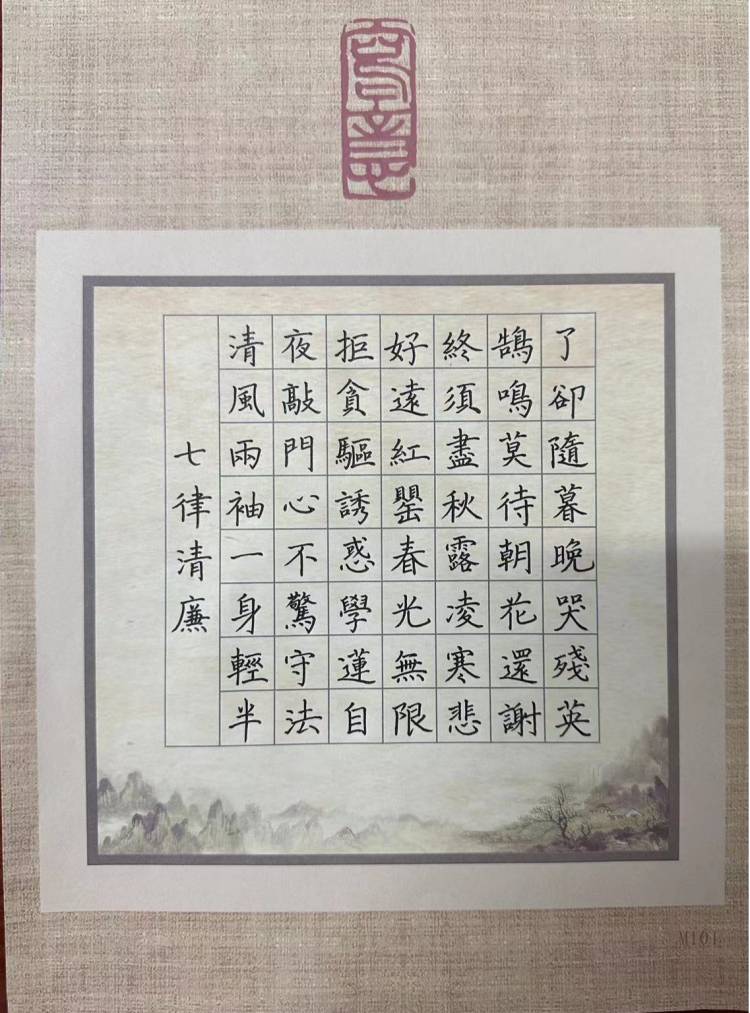 七律清廉
清風兩袖一身輕半
夜敲門心不驚守法
拒貪驅誘惑學蓮自
好遠紅罌春光無限
終須盡秋露凌寒悲
鵠鳴莫待朝花還謝
了卻隨暮晚哭殘英
M101